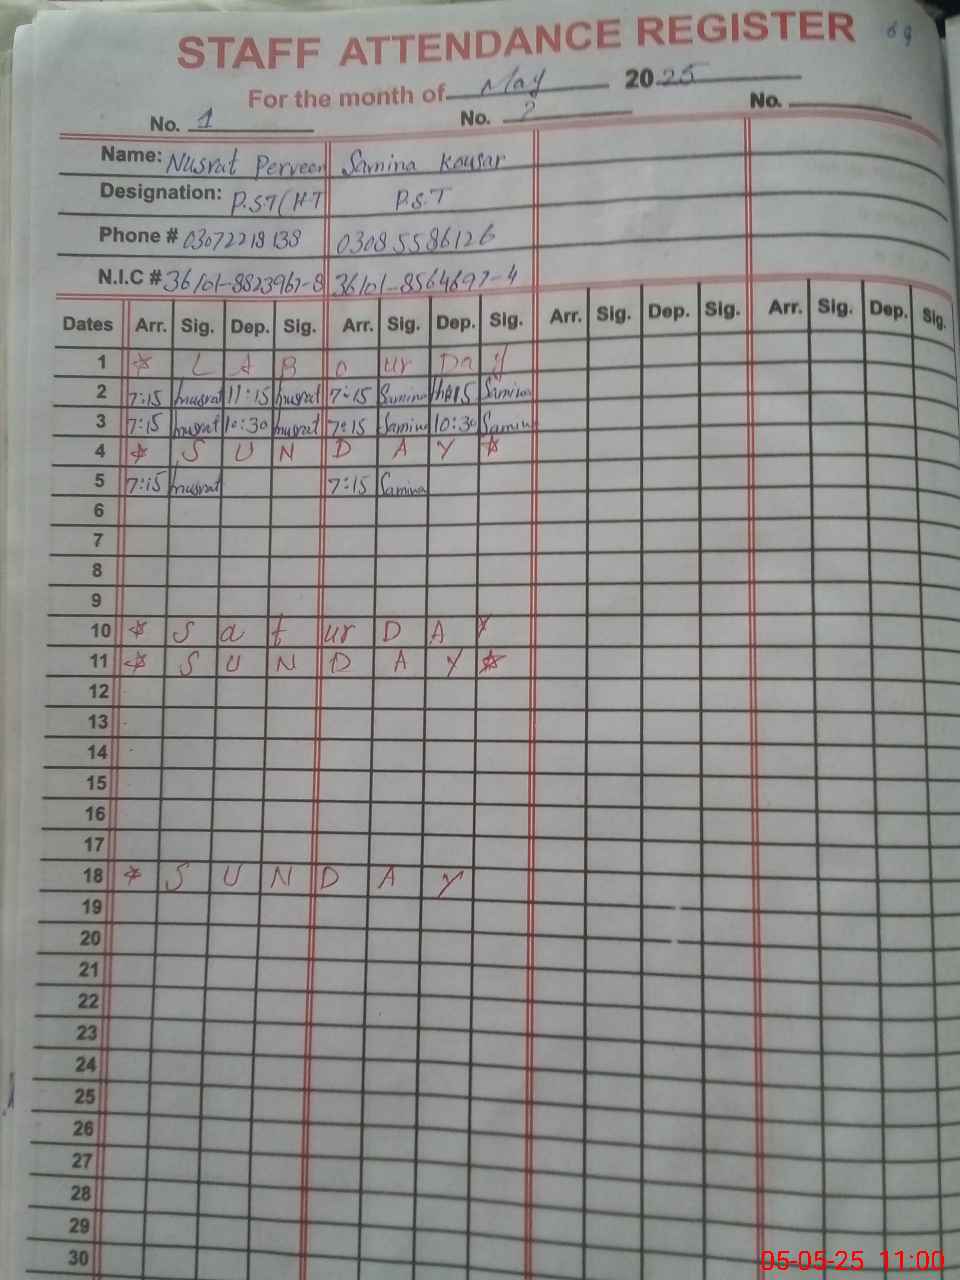 69
STAFF ATTENDANCE REGISTER
For the month of May 2025
No. 1 No. 2 No.
Name: Nusrat Perveen Samina Kousar
Designation: P.ST(H.T P.S.T
Phone # 03072218138 03085586126
N.I.C # 36101-8823967-8 36101-8564697-4
Dates Arr. Sig. Dep. Sig. Arr. Sig. Dep. Sig. Arr. Sig. Dep. Sig. Arr. Sig. Dep. Sig.
1 * L A B o ur Da y
2 7:15 nusrat 11:15 nusrat 7:15 Samina 11:15 Samina
3 7:15 nusrat 10:30 nusrat 7:15 Samina 10:30 Samina
4 * S U N D A Y *
5 7:15 nusrat 7:15 Samina
6
7
8
9
10 * S a t ur D A Y
11 * S U N D A Y *
12
13
14
15
16
17
18 * S U N D A Y
19
20
21
22
23
24
25
26
27
28
29
30
05-05-25 11:00